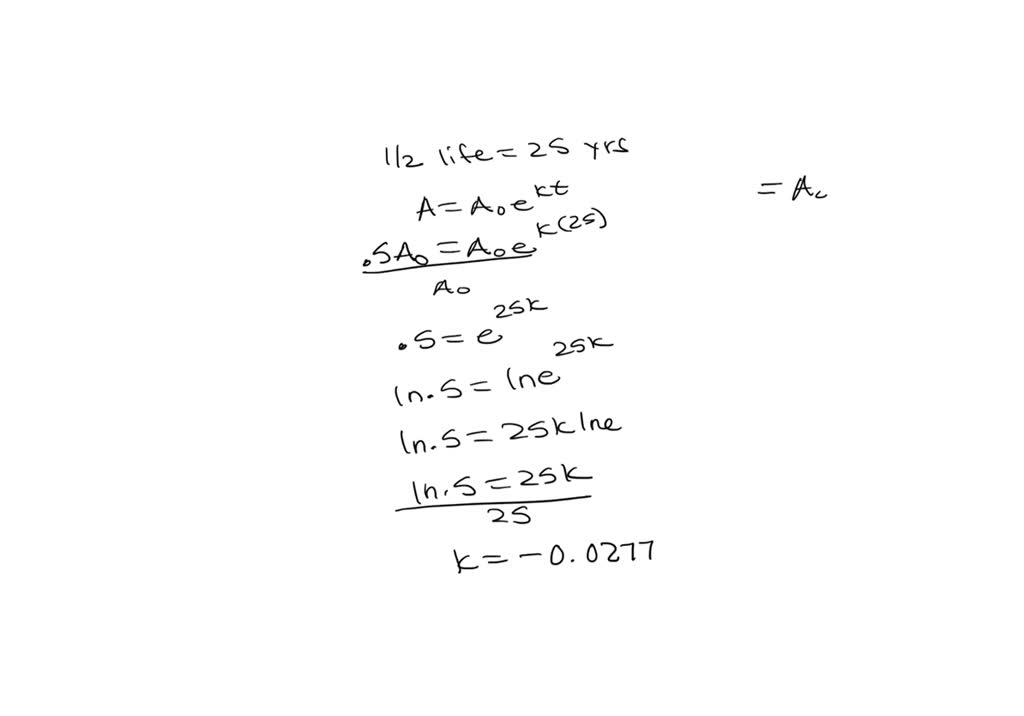 1/2 life = 25 yrs
A = A₀e^kt
= A₀
.5A₀ = A₀e^k(25)
A₀
.5 = e^25k
ln.5 = lne^25k
ln.5 = 25klne
ln.5 = 25k
25
k = -0.0277